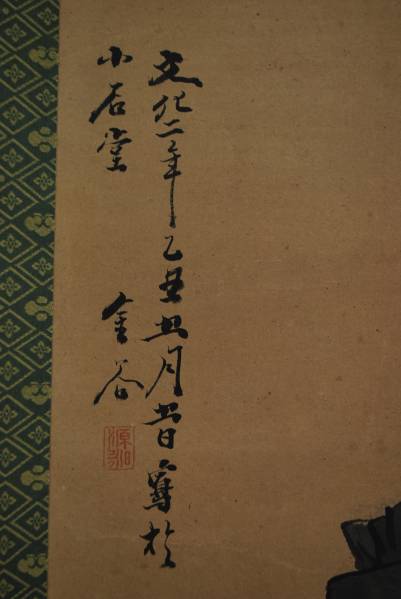 文化二年乙丑四月廿日寫於
小石堂
金谷